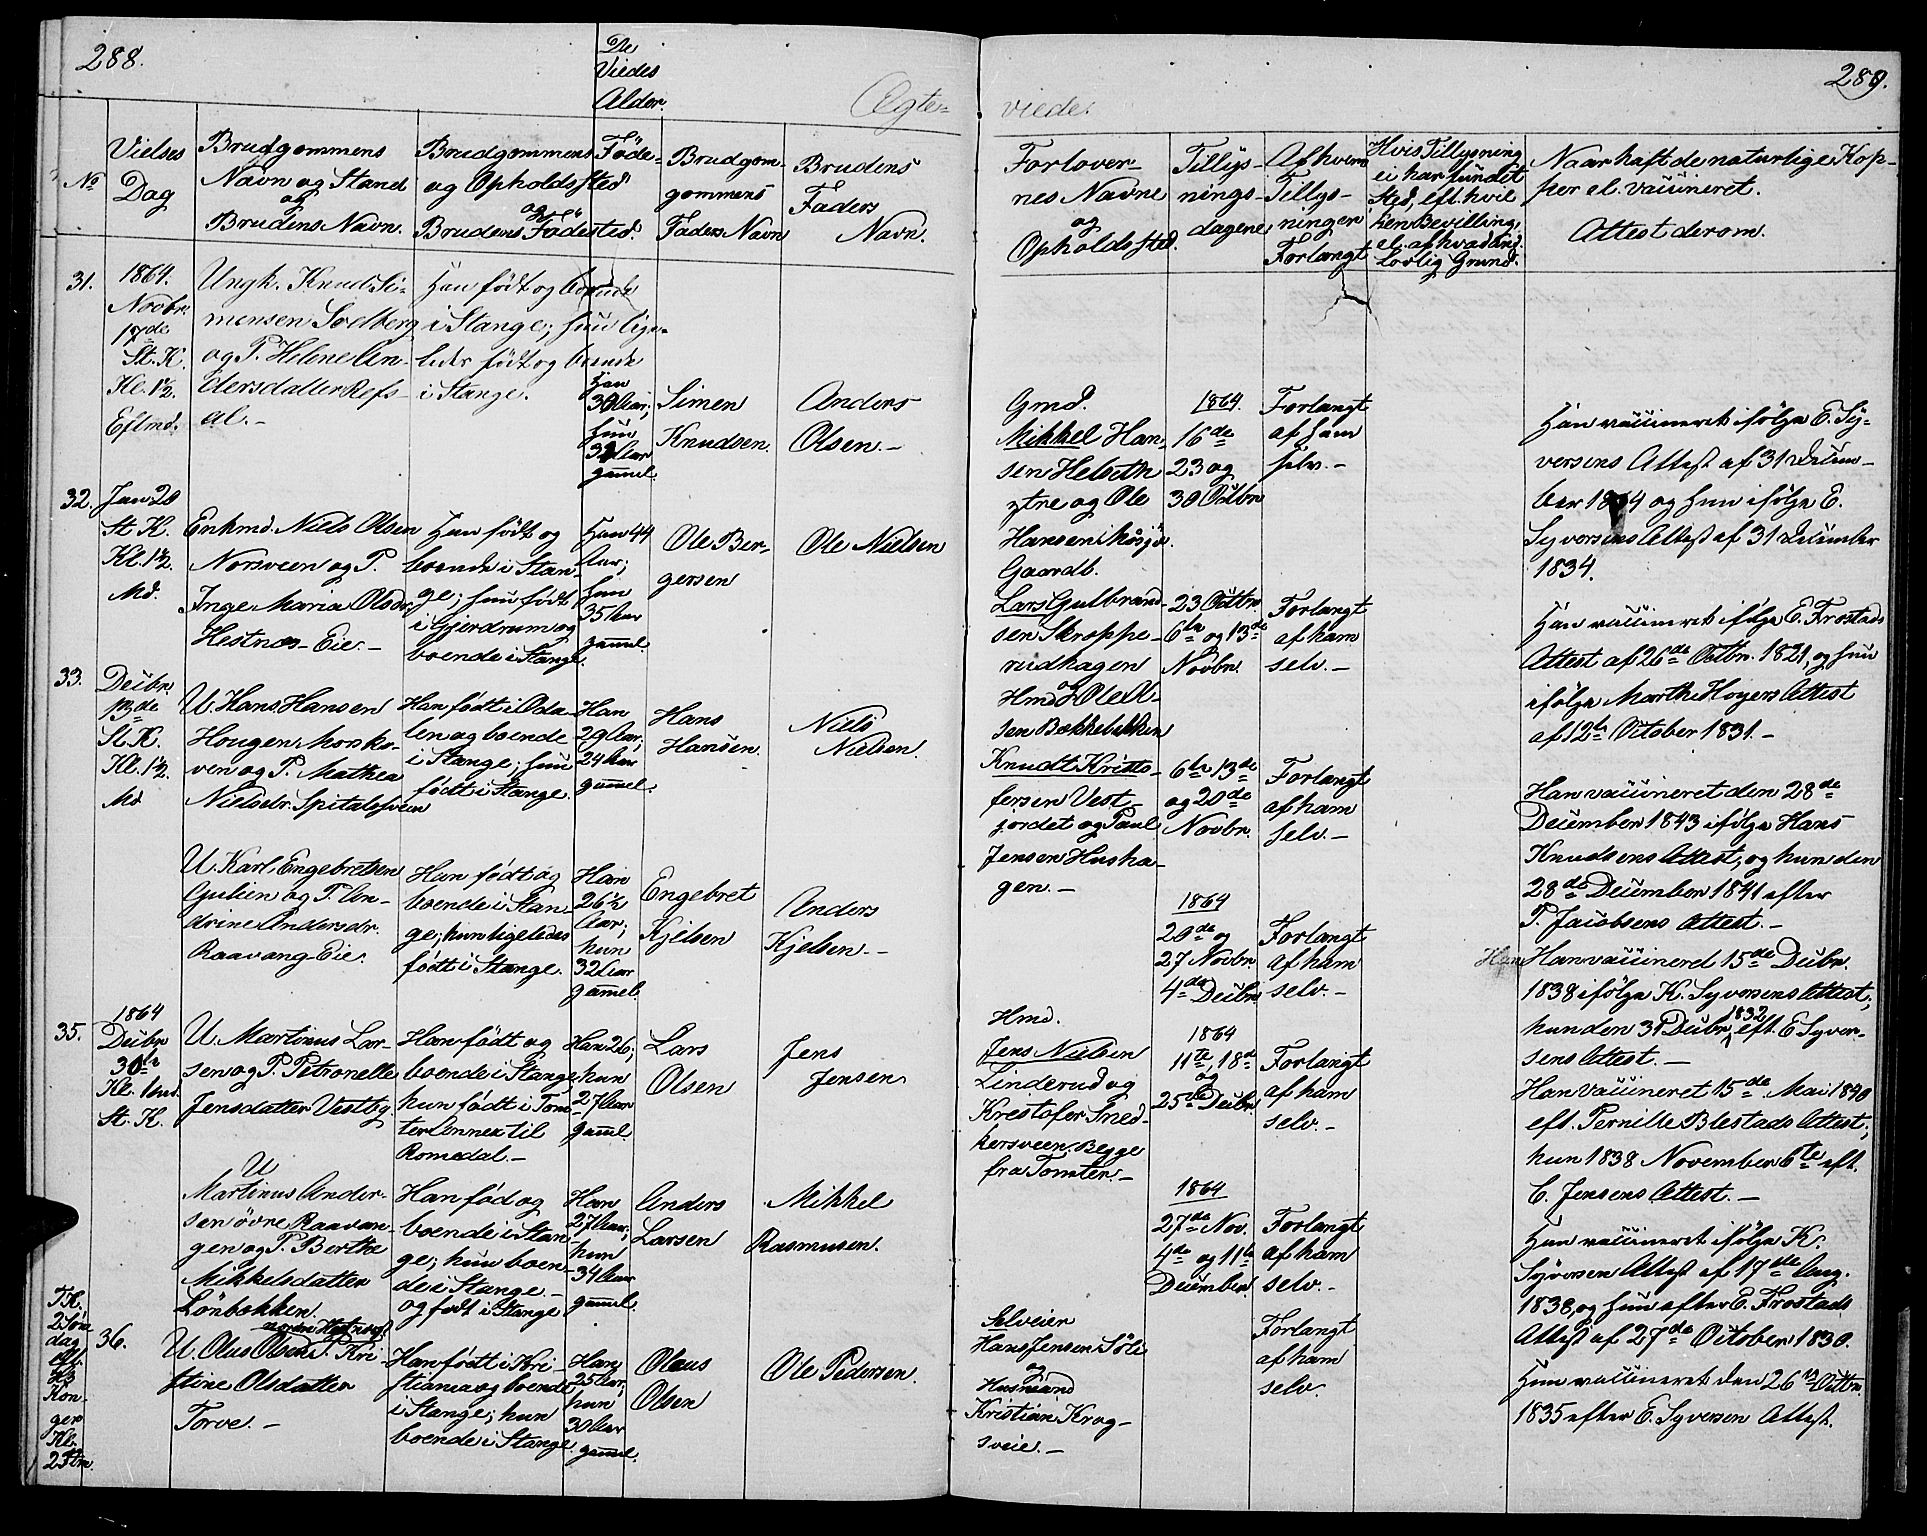 288.
De
Viedes
Alder.
Ægte-
viede.
289.
No
Vielses
Dag
Brudgommens
Navn og Stand
og
Brudens Navn.
Brudgommens
og Opholdssted
og
Brudens Födested.
Föde-
Brudgom-
gommens
Faders Navn
Brudens
Faders
Navn.
Forlover-
nes Navne
og
Opholdssted.
Tillys-
nings-
dagene
Af hvem
Tillys-
ningen
Forlangt
Hvis Tillysning
ei har fundet
Sted, eft. hvil
ken Bevilling,
el. af hvad and.
Lovlig Grund.
Naar haft de naturlige Kop-
per el. vaccineret.
Attest derom.
31.
1864.
Novbr.
17de
St. K.
Kl. 1½.
Eftmd.
Ungk. Knud Si-
mensen Soelberg
og P. Helene An-
dersdatter Refs-
al.-
Han født og boende
i Stange; hun lige-
ledes født og boende
i Stange.
Han
30 Aar;
hun
32 Aar
gammel.
Simen
Knudsen.
Anders
Olsen.-
Gmd.
Mikkel Han-
sen Helseth
ytre og Ole
Hansen
1864.
16de
23 og
30 Octbr.
Forlangt
af ham
selv.-
Han vaccineret ifölge E. Sy-
versens Attest af 31 Decem-
ber 1834 og hun ifölge E.
Syversens Attest af 31 December
1834.
32.
Jan 20
St. K.
Kl. 1½.
Md.
Enkmd. Niels Olsen
Norsveen og P.
Inge Maria Olsdr.
Hestnæs-Eie.-
Han født og
boende i Stan-
ge; hun født
i Gjerdrum og
boende i Stange.
Han 44
Aar;
hun
35 Aar
gammel.
Ole Ber-
gersen
Ole Nielsen
Gaardb.
Lars Gulbrand-
sen Skroppe-
rudhagen
og
Hmd Ole Ol-
sen Bækkelækken
23 Octbr.
6te og 13de
Novbr.
Forlangt
af ham
selv.-
Han vaccineret ifölge E. Frostads
Attest af 26de Octbr. 1821, og hun
ifölge Marthe Hoyers Attest
af 12te October 1831.-
33.
Decbr.
13de
St. K.
Kl. 1½.
Md
U. Hans Hansen
Hougen Mosko-
ven og P. Mathea
Nielsdr. Spitalsveen
Han født i Oda-
len og boende
i Stange; hun
født i Stange.
Han
29 Aar;
24 Aar
gammel.
Hans
Hansen.
Niels
Nielsen.
Knudt Kristo-
fersen Vest-
jordet og Paul
Jensen Husha-
gen.-
6te 13de
og 20de
Novbr.
Forlangt
af ham
selv.-
Han vaccineret den 28de
December 1843 ifölge Hans
Knudsens Attest, og hun den
28de December 1841 efter
P. Jacobsens Attest.-
U. Karl Engebretsen
Gulien og P. An-
drine Andersdr.
Raavang-Eie.
Han født og
boende i Stan-
ge; hun ligeledes
født i Stange.
Han
26½
Aar;
hun
32 Aar
gammel.
Engebret
Kjelsen
Anders
Kjelsen.-
1864
20de og
27 Novbr.
4de Decbr.
Forlangt
af ham
selv.-
Han vaccineret 15de Decbr.
1838 ifölge K. Syversens Attest;
hun den 31 Decbr. 1832 eft. E Syver-
sens Attest.-
1864
35.
Decbr
30te
Kl. 1 md.
St. K.
U. Martinus Lar-
sen og P. Petronelle
Jensdatter Vestby
Han født og
boende i Stange
hun født i Tom-
ter Annex til
Romedal.-
Han 26;
hun
27 Aar
gammel.
Lars
Olsen
Jens
Jensen
Hmd.
Jens Nielsen
Linderud og
Kristofer Sned-
kersveen. Begge
fra Tomter.-
1864
11te, 18de
og
25de Decbr.
Forlangt
af ham
selv.-
Han vaccineret 15de Mai 1840
eft. Pernille Blestads Attest;
hun 1838 November 6te eft.
C. Jensens Attest.-
U
Martinus Ander-
sen övre Raavan-
gen og P. Berthe
Mikkelsdatter
Lönbækken
Han fød og
boende i Stan-
ge; hun boen-
de i Stange.-
og født i Stange
Han
27 Aar;
hun
34 Aar
gammel.
Anders
Larsen
Mikkel
Rasmusen.
1864
27de Nov.
4de og 11te
December
Forlangt
af ham
selv.-
Han vaccineret ifölge K.
Syversen Attest af 17de Aug.
1838, og hun efter E. Frostads
Attest af 27de October 1830.
T.K.
2 Søn
dag
eft.
H3
Kon-
ger
Kl.
2 Ftm.
36.
U. Olus Olsen P. Kri
stine Olsdatter
Torve.-
Han født i Kri-
stiania og boende
i Stange; hun
boende i Stange.
Han
25 Aar;
hun
30 Aar
gammel.
Olaus
Olsen
Ole Pedersen.
Selveier
Hans Jensen Söli
og
Husmand
Kristian Krog-
sveie.-
Forlangt
af ham
selv.
Hun vaccineret den 26 Octbr.
1835 efter E. Syversen Attest.